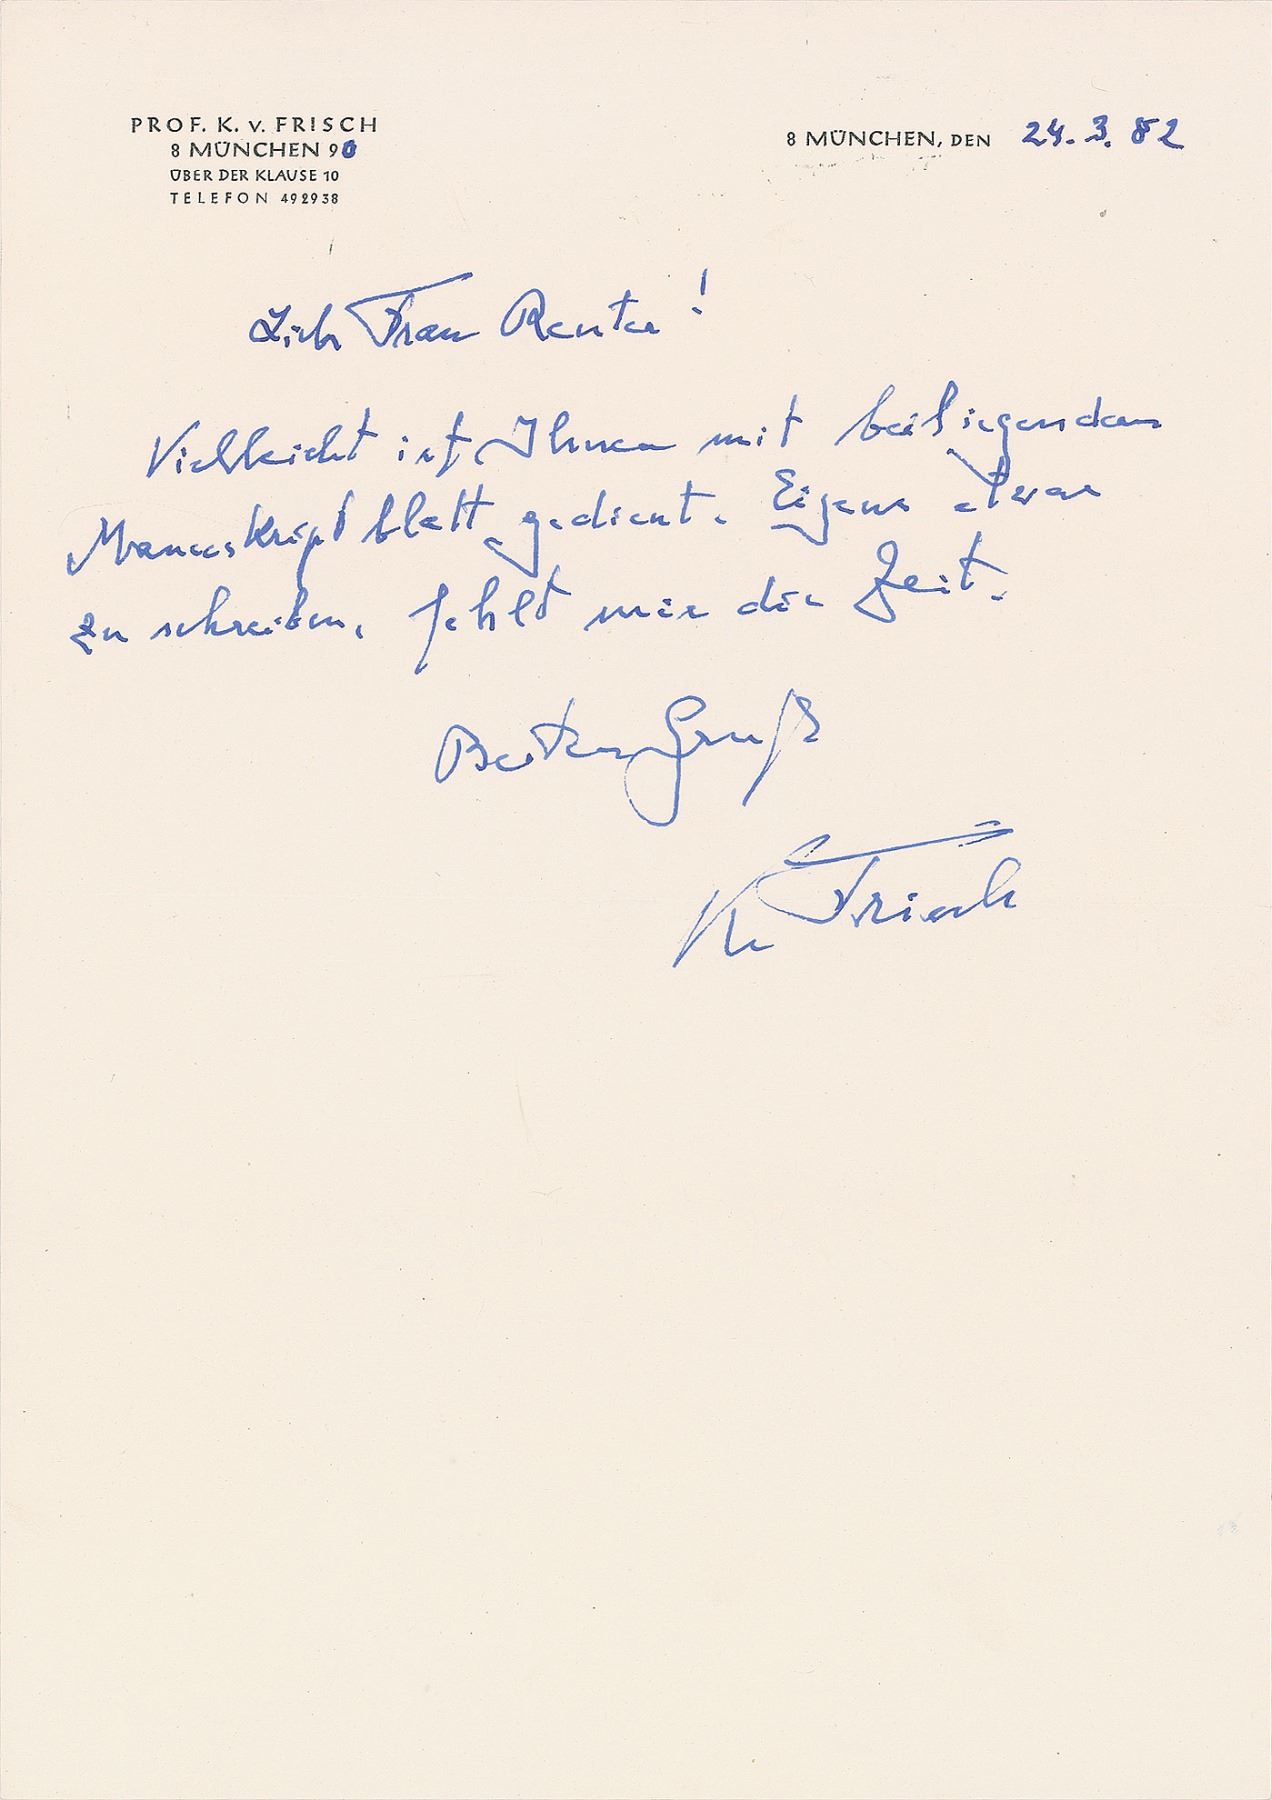 PROF. K. v. FRISCH
8 MÜNCHEN 90
ÜBER DER KLAUSE 10
TELEFON 492938
8 MÜNCHEN, DEN 24. 3. 82
Liebe Frau Reuter!
Vielleicht ist Ihnen mit beiliegendem
Manuskriptblatt gedient. Eigens etwas
zu schreiben, fehlt mir die Zeit.
Besten Gruß
K v Frisch